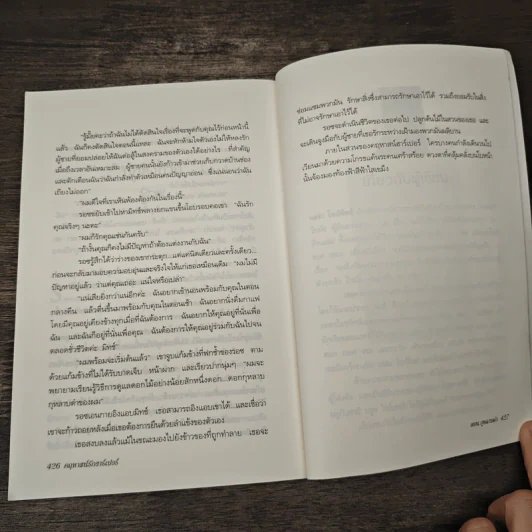 "รู้มั้ยคะว่าถ้าฉันไม่ได้ตัดสินใจเรื่องที่จะพูดกับคุณไว้ก่อนหน้านี้
แล้ว ฉันก็คงตัดสินใจตอนนี้แหละ ฉันจะหักห้ามใจตัวเองไม่ให้หลงรัก
ผู้ชายที่ยอมปล่อยให้ฉันต่อสู้ในสงครามของตัวเองได้อย่างไร ...ที่สำคัญ
เมื่อถึงเวลาอันเหมาะสม ผู้ชายคนนั้นยังก้าวเข้ามาช่วยเก็บกวาดบ้านช่อง
และตักเตือนฉันว่าฉันกำลังทำตัวเหมือนคนปัญญาอ่อน ซึ่งแน่นอนว่าฉัน
เถียงไม่ออก"
"ผมดีใจที่เราเห็นพ้องต้องกันในเรื่องนี้"
รอซขยับเข้าไปหามิทช์พลางยกแขนขึ้นโอบรอบคอเขา "ฉันรัก
คุณจริงๆ นะคะ"
"ผมก็รักคุณเช่นกันครับ"
"ถ้างั้นคุณก็คงไม่มีปัญหาถ้าต้องแต่งงานกับฉัน"
รอซรู้สึกได้ว่าร่างของเขากระตุก...แค่แค่นิดเดียวและครั้งเดียว...
ก่อนจะกลับมามอบความอบอุ่นและจริงใจให้แก่เธอเหมือนเดิม "ผมไม่มี
ปัญหาอยู่แล้ว ว่าแต่คุณเถอะ แน่ใจหรือเปล่า"
"แน่เสียยิ่งกว่าแน่อีกค่ะ ฉันอยากเข้านอนพร้อมกับคุณในตอน
กลางคืน แล้วตื่นขึ้นมาพร้อมกับคุณในตอนเช้า ฉันอยากนั่งดื่มกาแฟ
โดยมีคุณอยู่เคียงข้างทุกเมื่อที่ฉันต้องการ ฉันอยากให้คุณอยู่ที่นั่นเพื่อ
ฉัน และฉันก็อยู่ที่นั่นเพื่อคุณ ฉันต้องการให้คุณอยู่ร่วมกับฉันไปจน
ตลอดชั่วชีวิตค่ะ มิทช์"
"ผมพร้อมจะเริ่มต้นแล้ว" เขาจูบแก้มข้างที่ฟกช้ำของรอซ ตาม
ด้วยแก้มข้างที่ไม่ได้รับบาดเจ็บ หน้าผาก และเรียวปากนุ่มๆ "ผมจะ
พยายามเรียนรู้วิธีการดูแลดอกไม้อย่างน้อยสักหนึ่งดอก...ดอกกุหลาบ
กุหลาบดำของผม"
รอซเอนกายอิงแอบมิทช์ เธอสามารถอิงแอบเขาได้...และเชื่อว่า
เขาจะก้าวถอยหลังเมื่อเธอต้องการยืนด้วยลำแข้งของตัวเอง
เธอสงบลงแล้วแม้ในขณะมองไปยังข้าวของที่ถูกทำลาย เธอจะ
426
ซ่อมแซมพวกมัน รักษาสิ่งซึ่งสามารถรักษาเอาไว้ได้ รวมถึงยอมรับในสิ่ง
ที่ไม่อาจรักษาเอาไว้ได้
รอซจะดำเนินชีวิตของเธอต่อไป ปลูกต้นไม้ในสวนของเธอ และ
จะเดินจูงมือกับผู้ชายที่เธอรักระหว่างเฝ้ามองพวกมันผลิบาน
ภายในสวนของคฤหาสน์ฮาร์เปอร์ ใครบางคนกำลังเดินวนไป
เวียนมาด้วยความโกรธแค้นระคนเศร้าสร้อย ดวงตาที่คลุ้มคลั่งบนใบหน้า
นั้นจ้องมองท้องฟ้าสีฟ้าใสเขม็ง
427